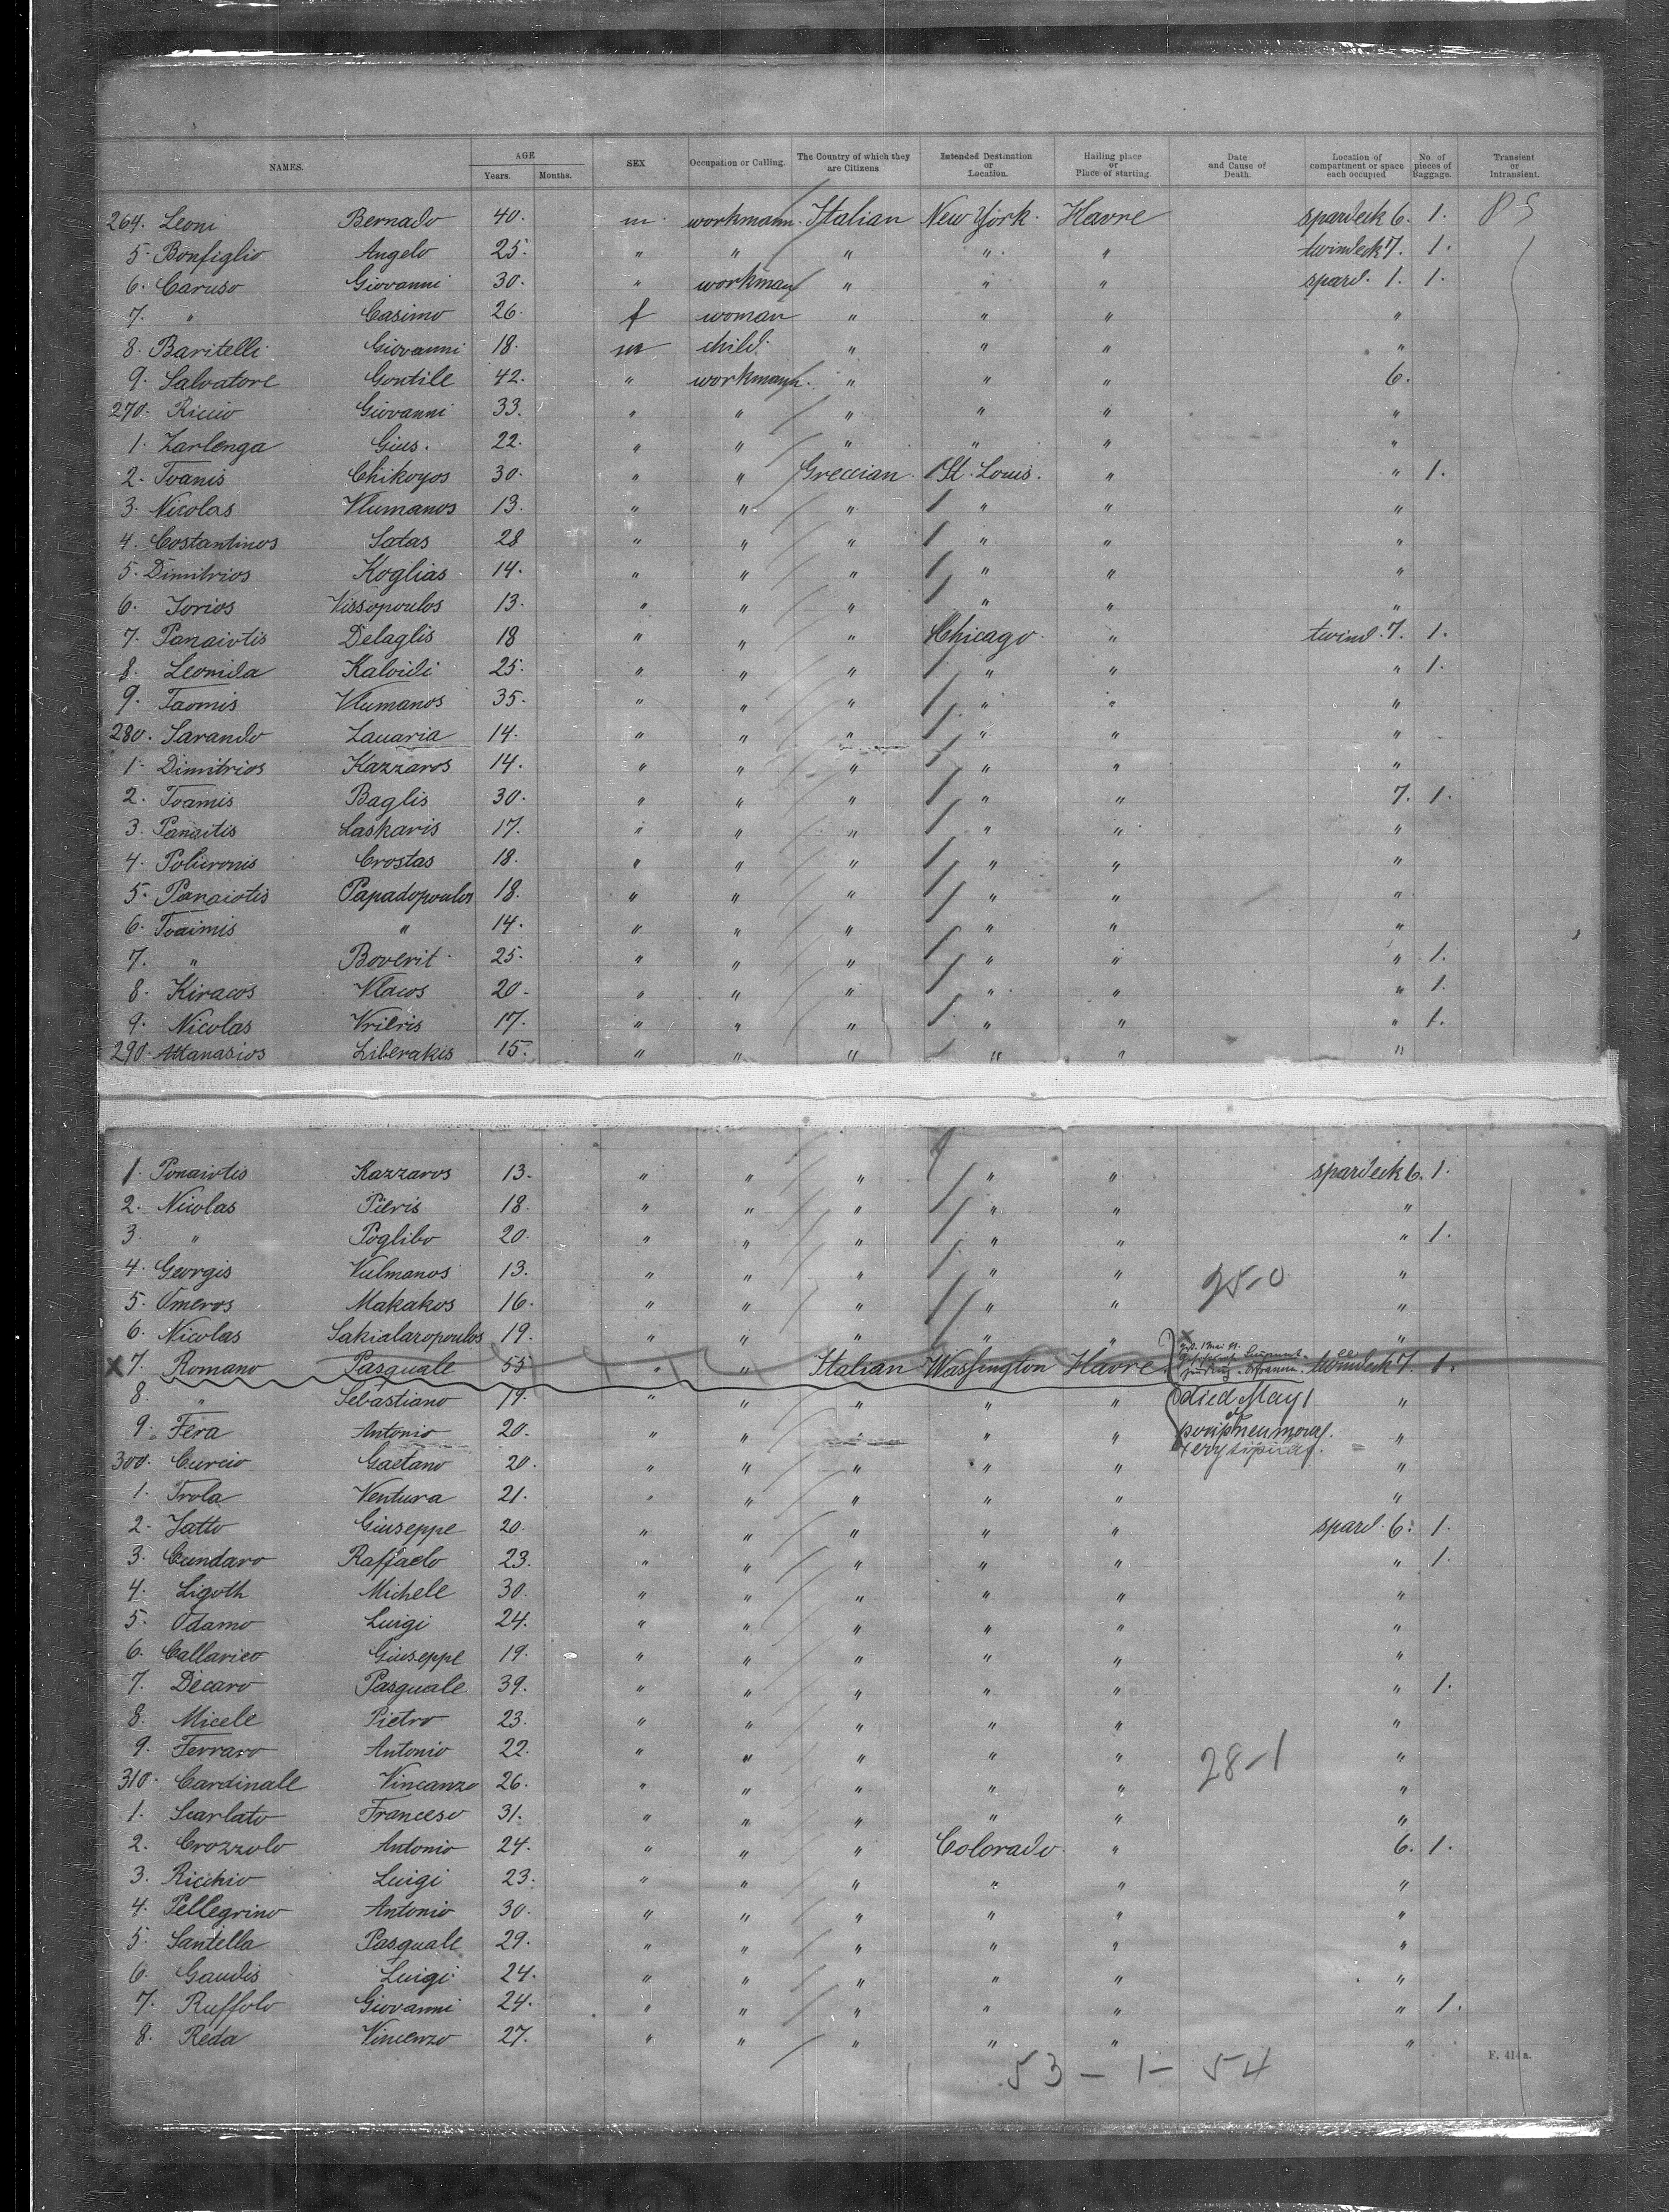 NAMES. AGE Years. Months. SEX Occupation or Calling. The Country of which they are Citizens Intended Destination or Location. Hailing place or Place of starting. Date and Cause of Death. Location of compartment or space each occupied No. of pieces of Baggage. Transient or Intransient.
264. Leoni Bernado 40. m. workmann. Italian New York. Havre spardeck 6. 1.
5. Bonfiglio Angelo 25. " " " " " twindeck 7. 1.
6. Caruso Giovanni 30. " workman " " " spard. 1. 1.
7. " Casimo 26. f woman " " " "
8. Baritelli Giovanni 18. m child. " " " "
9. Salvatore Gontile 42. " workmann. " " " 6.
270. Riccio Giovanni 33. " " " " " "
1. Zarlenga Gius. 22. " " " " " "
2. Tvanis Chikoyos 30. " " Greccian. St. Louis. " " 1.
3. Nicolas Vlumanos 13. " " " " " "
4. Costantinos Satas 28 " " " " " "
5. Dimitrios Koglias 14. " " " " " "
6. Jorios Vissopoulos 13. " " " " " "
7. Panaiotis Delaglis 18 " " " Chicago. " twind. 7. 1.
8. Leonida Kaloidi 25. " " " " " " 1.
9. Taomis Vlumanos 35. " " " " " "
280. Sarando Zauaria 14. " " " " " "
1. Dimitrios Kazzaros 14. " " " " " "
2. Tvamis Baglis 30. " " " " " 7. 1.
3. Panaitis Laskaris 17. " " " " " "
4. Policronis Crostas 18. " " " " " "
5. Panaiotis Papadopoulos 18. " " " " " "
6. Tvaimis " 14. " " " " " "
7. " Boverit 25. " " " " " " 1.
8. Kiracos Vlacos 20. " " " " " " 1.
9. Nicolas Vrieris 17. " " " " " " 1.
290. Attanasios Liberakis 15. " " " " " "
1. Ponaiotis Kazzaros 13. " " " " " spardeck 6. 1.
2. Nicolas Pieris 18. " " " " " "
3. " Poglibo 20. " " " " " " 1.
4. Georgis Vulmanos 13. " " " " " "
25-0
5. Omeros Makakos 16. " " " " " "
6. Nicolas Sakialaropoulos 19. " " " " " "
X 7. Romano Pasquale 55 " " Italian Washington Havre twindeck 7. 1.
8. " Sebastiano 19. " " " " " died May 1 "
9. Fera Antonio 20. " " " " " of "
300. Curcio Gaetano 20. " " " " " "
1. Trola Ventura 21. " " " " " "
2. Jatto Giuseppe 20. " " " " " spard. 6. 1.
3. Cundaro Raffaelo 23. " " " " " " 1.
4. Ligoth Michele 30. " " " " " "
5. Odamo Luigi 24. " " " " " "
6. Callarico Giuseppe 19. " " " " " "
7. Decaro Pasquale 39. " " " " " " 1.
8. Micele Pietro 23. " " " " " "
9. Ferraro Antonio 22. " " " " " "
28-1
310. Cardinale Vincanzo 26. " " " " " "
1. Scarlato Franceso 31. " " " " " "
2. Crozzolo Antonio 24. " " " Colorado. " 6. 1.
3. Ricchio Luigi 23. " " " " " "
4. Pellegrino Antonio 30. " " " " " "
5. Santella Pasquale 29. " " " " " "
6. Gaudis Luigi 24. " " " " " "
7. Ruffolo Giovanni 24. " " " " " " 1.
8. Reda Vincenzo 27. " " " " " "
53 - 1 - 54
F. 414a.